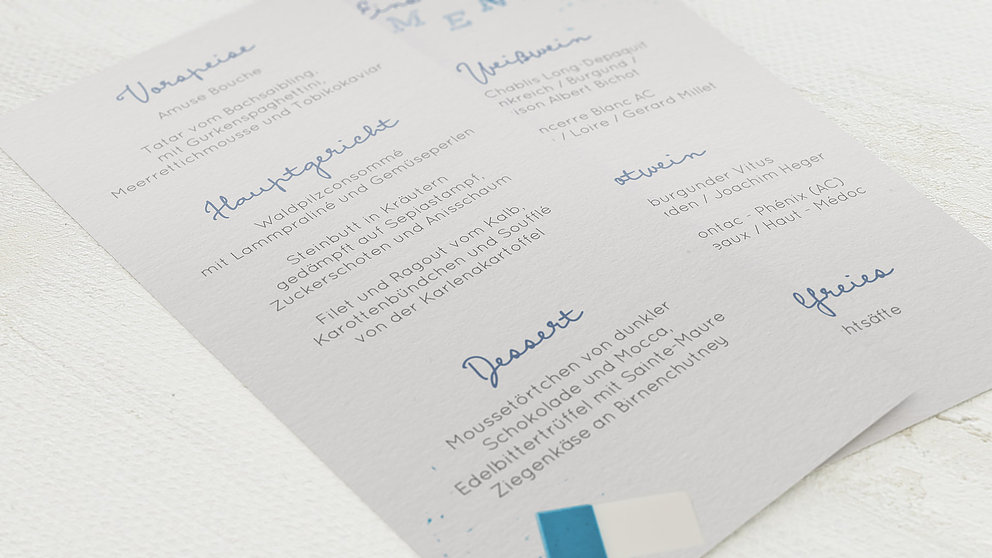 Vorspeise
Amuse Bouche
Tatar vom Bachsaibling,
mit Gurkenspaghettini,
Meerrettichmousse und Tobikokaviar
Hauptgericht
Waldpilzconsommé
mit Lammpraliné und Gemüseperlen
Steinbutt in Kräutern
gedämpft auf Sepiastampf,
Zuckerschoten und Anisschaum
Filet und Ragout vom Kalb,
Karottenbündchen und Soufflé
von der Karlenakartoffel
Dessert
Moussetörtchen von dunkler
Schokolade und Mocca,
Edelbittertrüffel mit Sainte-Maure
Ziegenkäse an Birnenchutney
MEN
Weißwein
Chablis Long-Depaquit
nkreich / Burgund /
ison Albert Bichot
ncerre Blanc AC
/ Loire / Gerard Millet
otwein
burgunder Vitus
den / Joachim Heger
ontac - Phénix (AC)
eaux / Haut - Médoc
lfreies
htsäfte